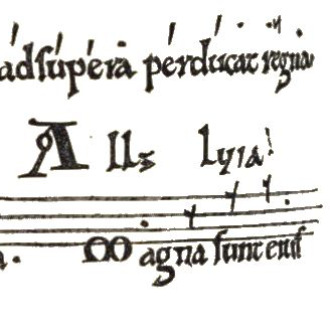 ad sup̄era perducat regna
A lle lyia
a. Magna sunt eni